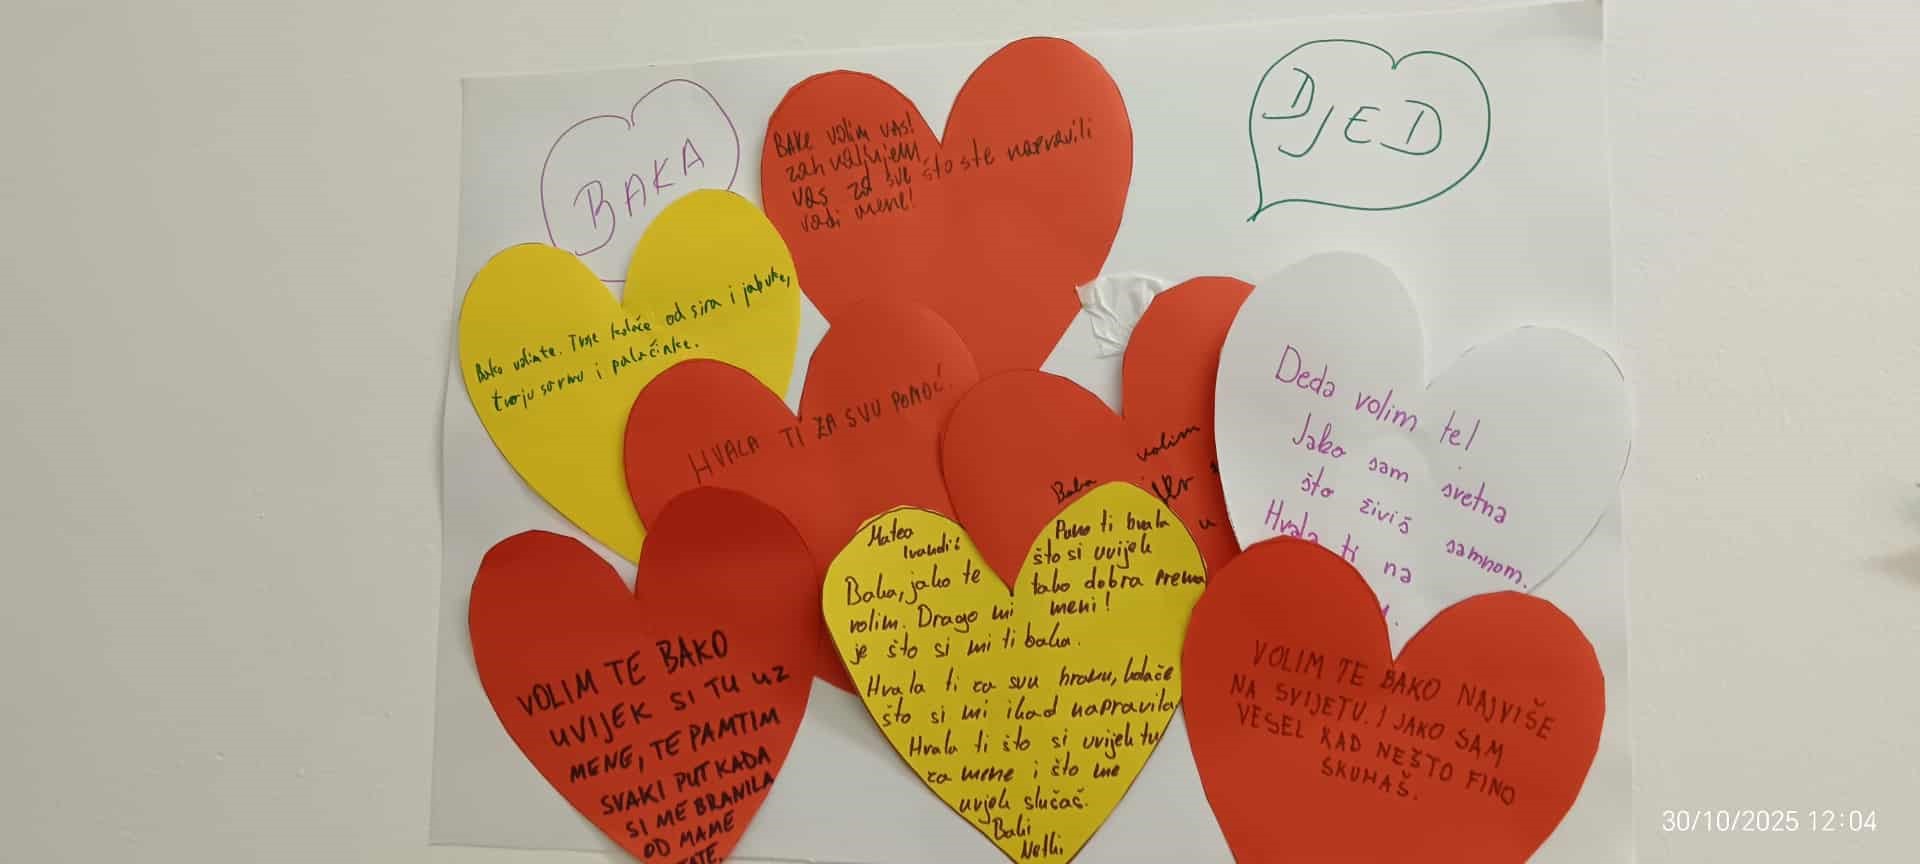 BAKA
DJED
BAKE VOLIM VAS!
zahvaljujem
vas za sve što ste napravili
radi mene!
Bako volim te. Tvoje kolače od sira i jabuke,
tvoju sarmu i palačinke.
HVALA TI ZA SVU POMOĆ.
Baba volim
Deda volim te!
Jako sam sretna
što živiš samnom.
Hvala ti na
VOLIM TE BAKO
UVIJEK SI TU UZ
MENE, TE PAMTIM
SVAKI PUT KADA
SI ME BRANILA
OD MAME
TATE.
Matea
Ivandić
Baka, jako te
volim. Drago mi
je što si mi ti baka.
Puno ti hvala
što si uvijek
tako dobra prema
meni!
Hvala ti za svu hranu, kolače
što si mi ikad napravila
Hvala ti što si uvijek tu
za mene i što me
uvjek slučaš.
Baki
VOLIM TE BAKO NAJVIŠE
NA SVIJETU. I JAKO SAM
VESEL KAD NEŠTO FINO
SKUHAŠ.
30/10/2025 12:04